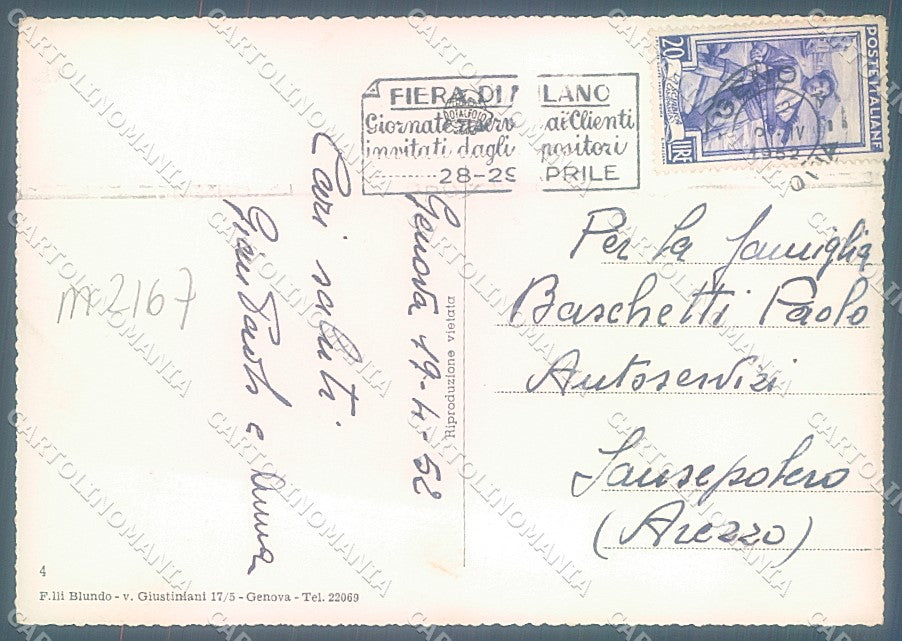 FIERA DI MILANO
Giornate riserv ai Clienti
invitati dagli positori
28-29 APRILE
POSTE ITALIANE
20
LIRE
GENOVA
1952
Genova 19-4-52
Cari saluti
Gian Paolo e Anna
m2167
Per la famiglia
Baschetti Paolo
Autoservizi
Sansepolcro
(Arezzo)
Riproduzione vietata
4
F.lli Blundo - v. Giustiniani 17/5 - Genova - Tel. 22069
CARTOLINOMANIA